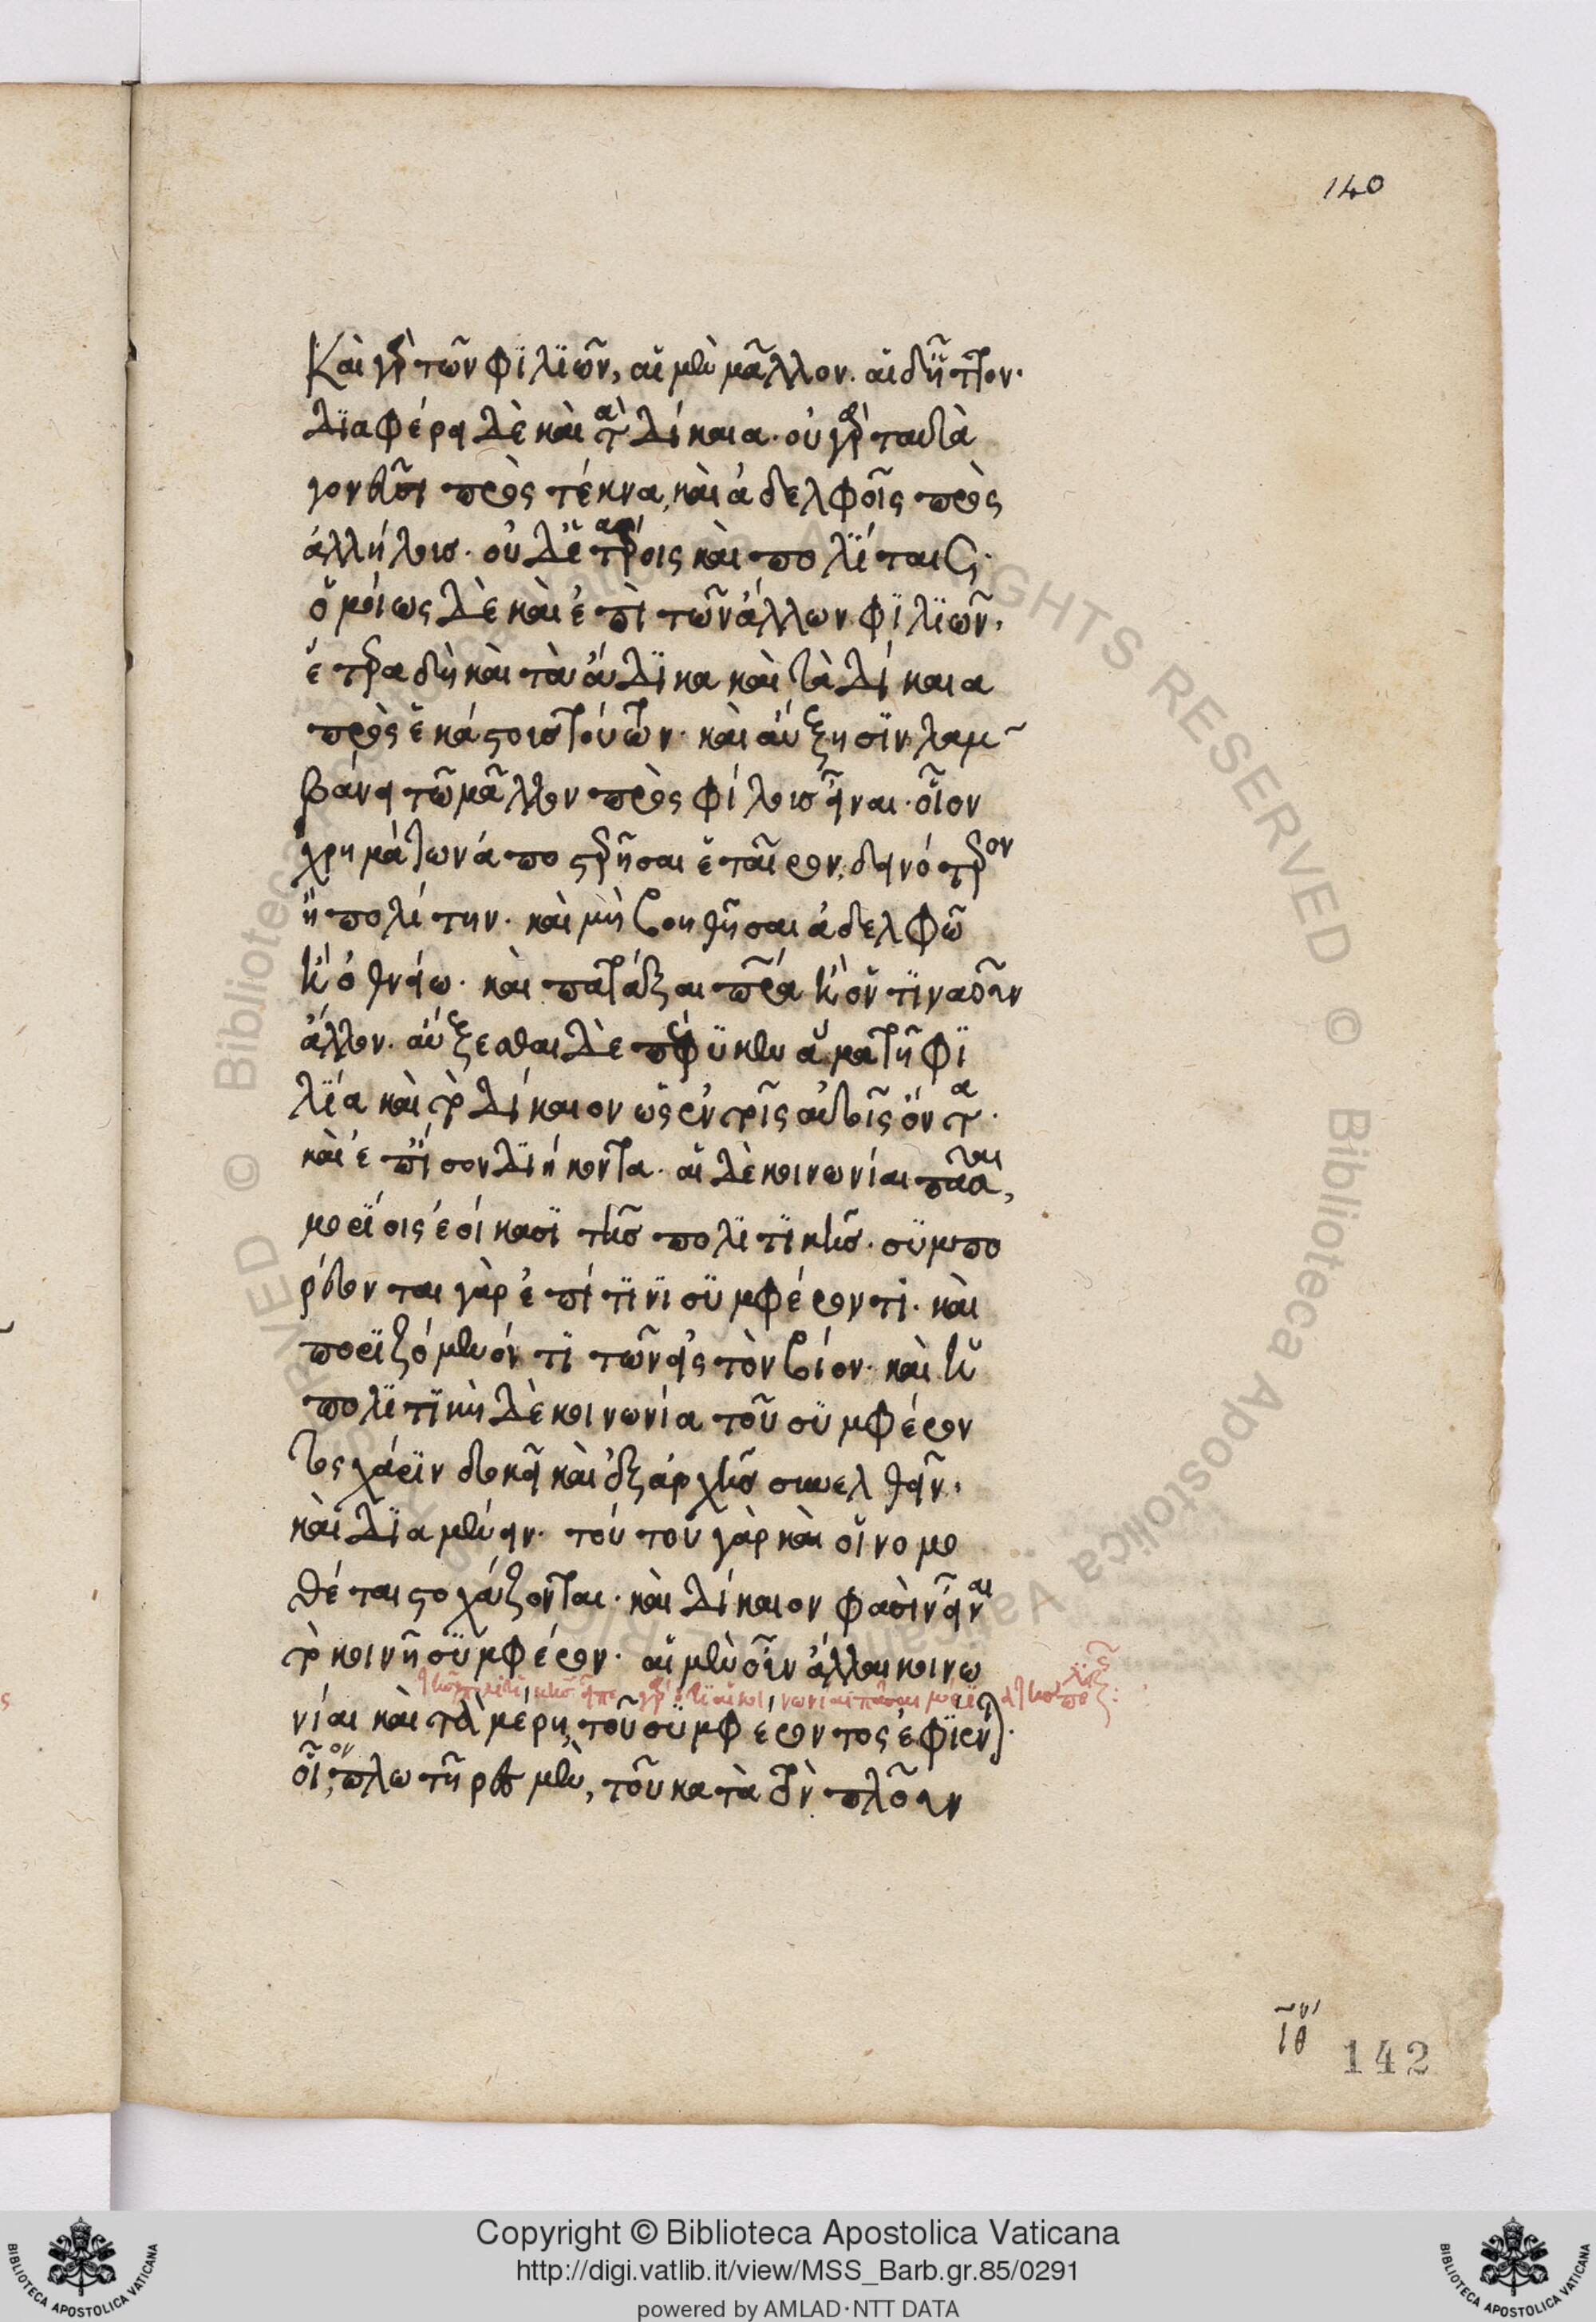 140
Καὶ γὰρ τῶν φϊλϊῶν, αἱ μὲν μᾶλλον. αἱ δ' ἧττον.
Δϊαφέρει δὲ καὶ τὰ δίκαια. οὐ γὰρ ταυτὰ
γονεῦσι πρὸς τέκνα, καὶ ἀδελφοῖς πρὸς
ἀλλήλους. οὐδὲ ἑταίροις καὶ πολΐταις.
ὁμοίως δὲ καὶ ἐπὶ τῶν ἄλλων φϊλϊῶν.
ἕτερα δὴ καὶ τὰ ἄδϊκα καὶ τὰ δίκαια
πρὸς ἑκάστους τούτων. καὶ αὔξησϊν λαμ
βάνει τῶ μᾶλλον πρὸς φίλους εἶναι. οἷον
χρημάτων ἀποστερῆσαι ἑταῖρον, δεινότερον
ἢ πολίτην. καὶ μὴ βοηθῆσαι ἀδελφῶ
ἢ ὀθνείω. καὶ πατάξαι πατέρα ἢ ὅντϊναοῦν
ἄλλον. αὔξεσθαι δὲ πέφϋκεν ἅμα τῆ φϊ
λΐα καὶ τὸ δίκαιον ὡς ἐν τοῖς αὐτοῖς ὄντα.
καὶ ἐπ' ἴσον δϊήκοντα. αἱ δὲ κοινωνίαι πᾶσαι,
μορϊοις ἐοίκασϊ τῆς πολϊτϊκῆς. σϋμπο
ρεύονται γὰρ ἐπί τϊνϊ σϋμφέροντϊ. καὶ
πορϊζόμενοί τϊ τῶν εἰς τὸν βίον. καὶ ἡ
πολϊτϊκὴ δὲ κοινωνία τοῦ σϋμφέρον
τος χάρϊν δοκεῖ καὶ ἐξ ἀρχῆς συνελθεῖν.
καὶ δϊαμένειν. τούτου γὰρ καὶ οἱ νομο
θέται στοχάζονται. καὶ δίκαιον φασὶν εἶναι
τὸ κοινῆ σϋμφέρον. αἱ μὲν οὖν ἄλλαι κοινω
νίαι κατὰ μέρη τοῦ σϋμφέροντος ἐφϊενται.
οἷον, πλωτῆρες μὲν, τοῦ κατὰ τὸν πλοῦν
ιθ
142
Copyright © Biblioteca Apostolica Vaticana
http://digi.vatlib.it/view/MSS_Barb.gr.85/0291
powered by AMLAD·NTT DATA